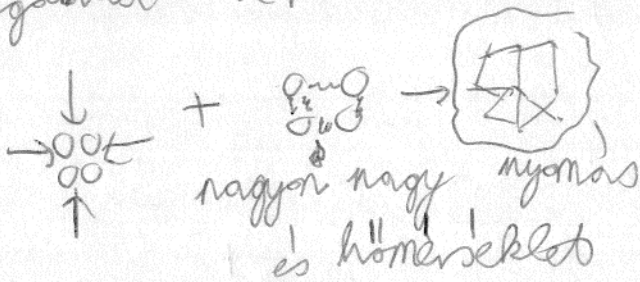 nagyon nagy nyomás
és hőmérséklet